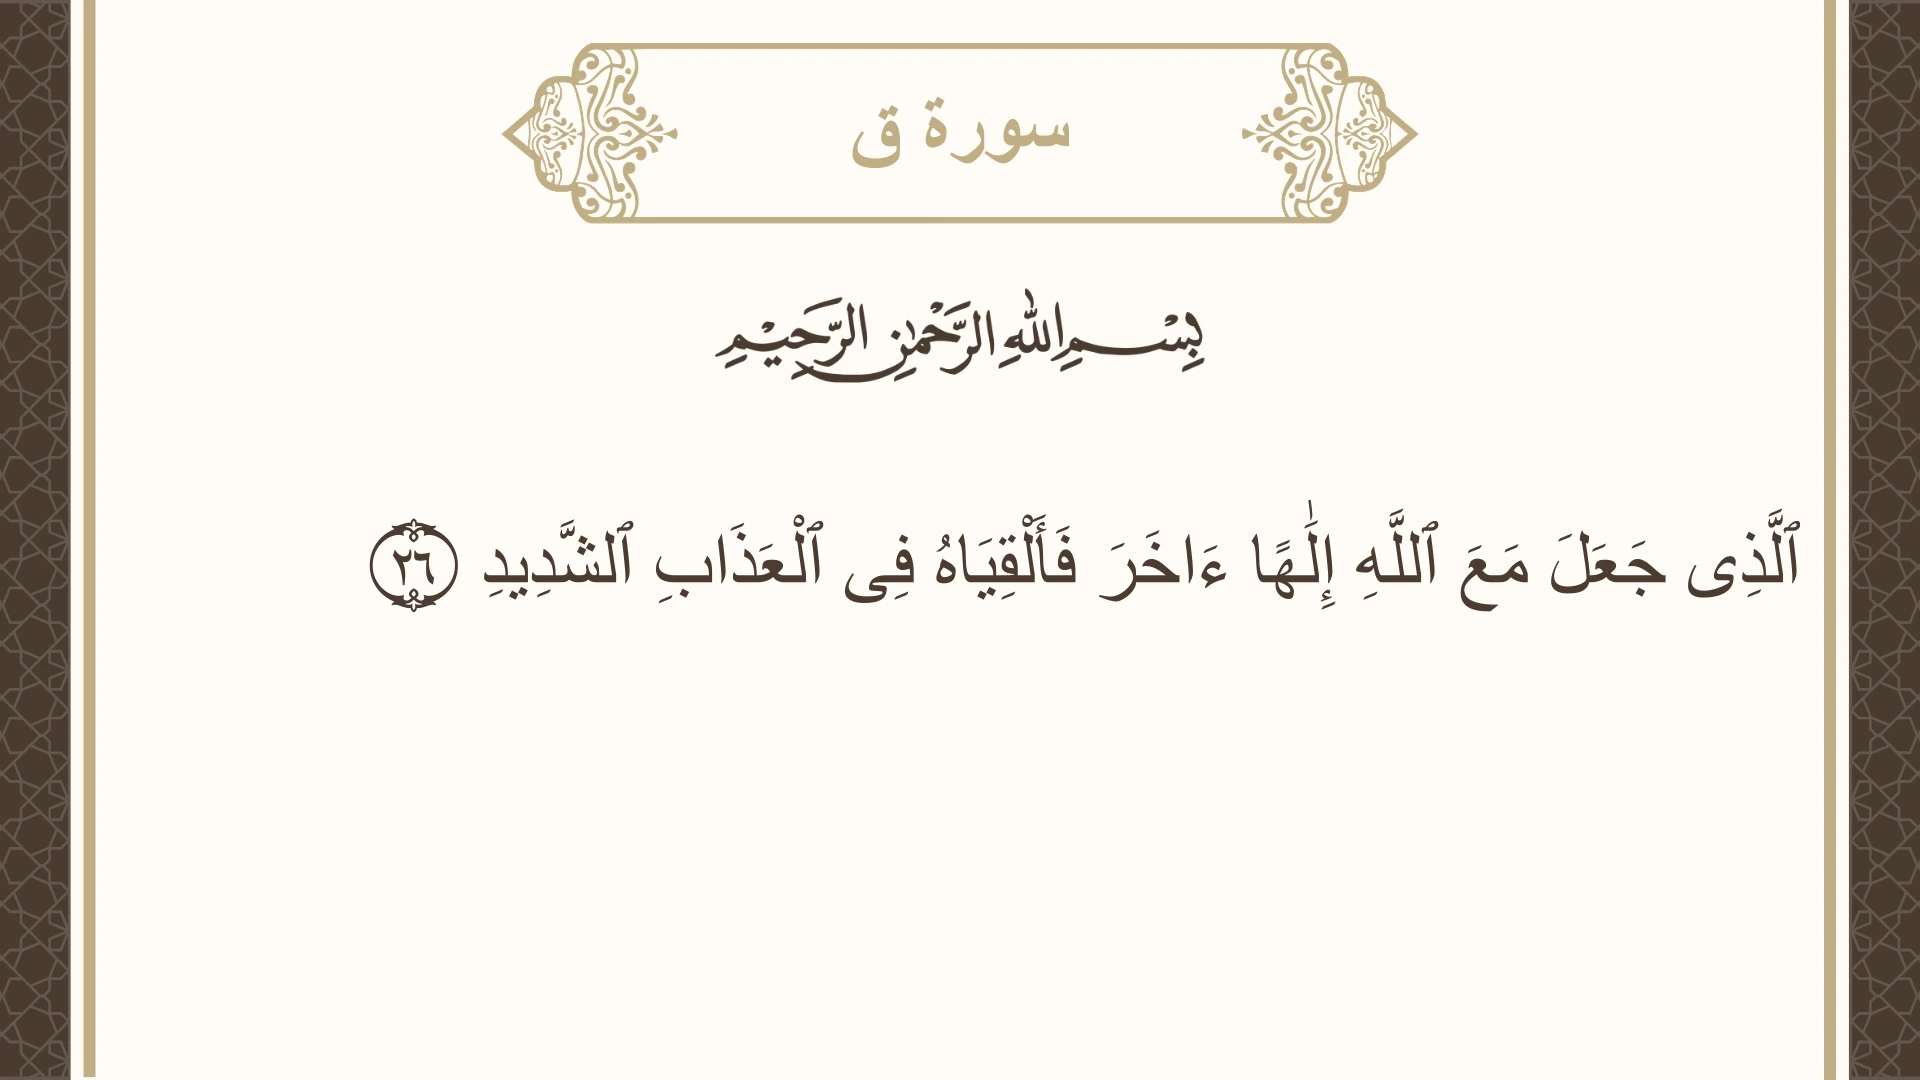 سورة ق
بِسْمِ اللهِ الرَّحْمٰنِ الرَّحِيْمِ
ٱلَّذِى جَعَلَ مَعَ ٱللَّهِ إِلَٰهًا ءَاخَرَ فَأَلْقِيَاهُ فِى ٱلْعَذَابِ ٱلشَّدِيدِ ٢٦